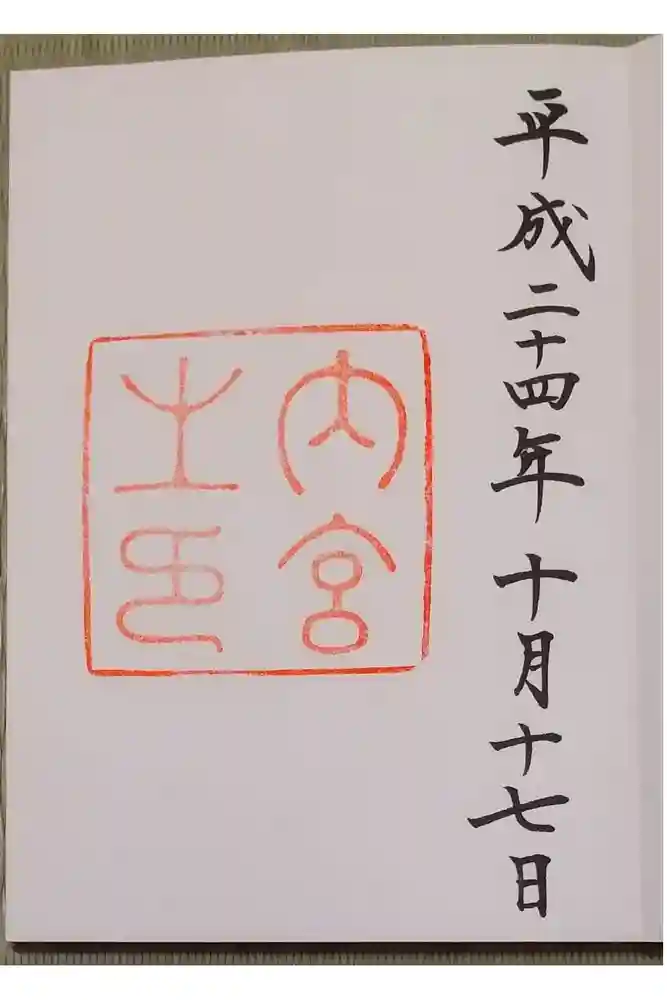 平成二十四年十月十七日
内宮
之印